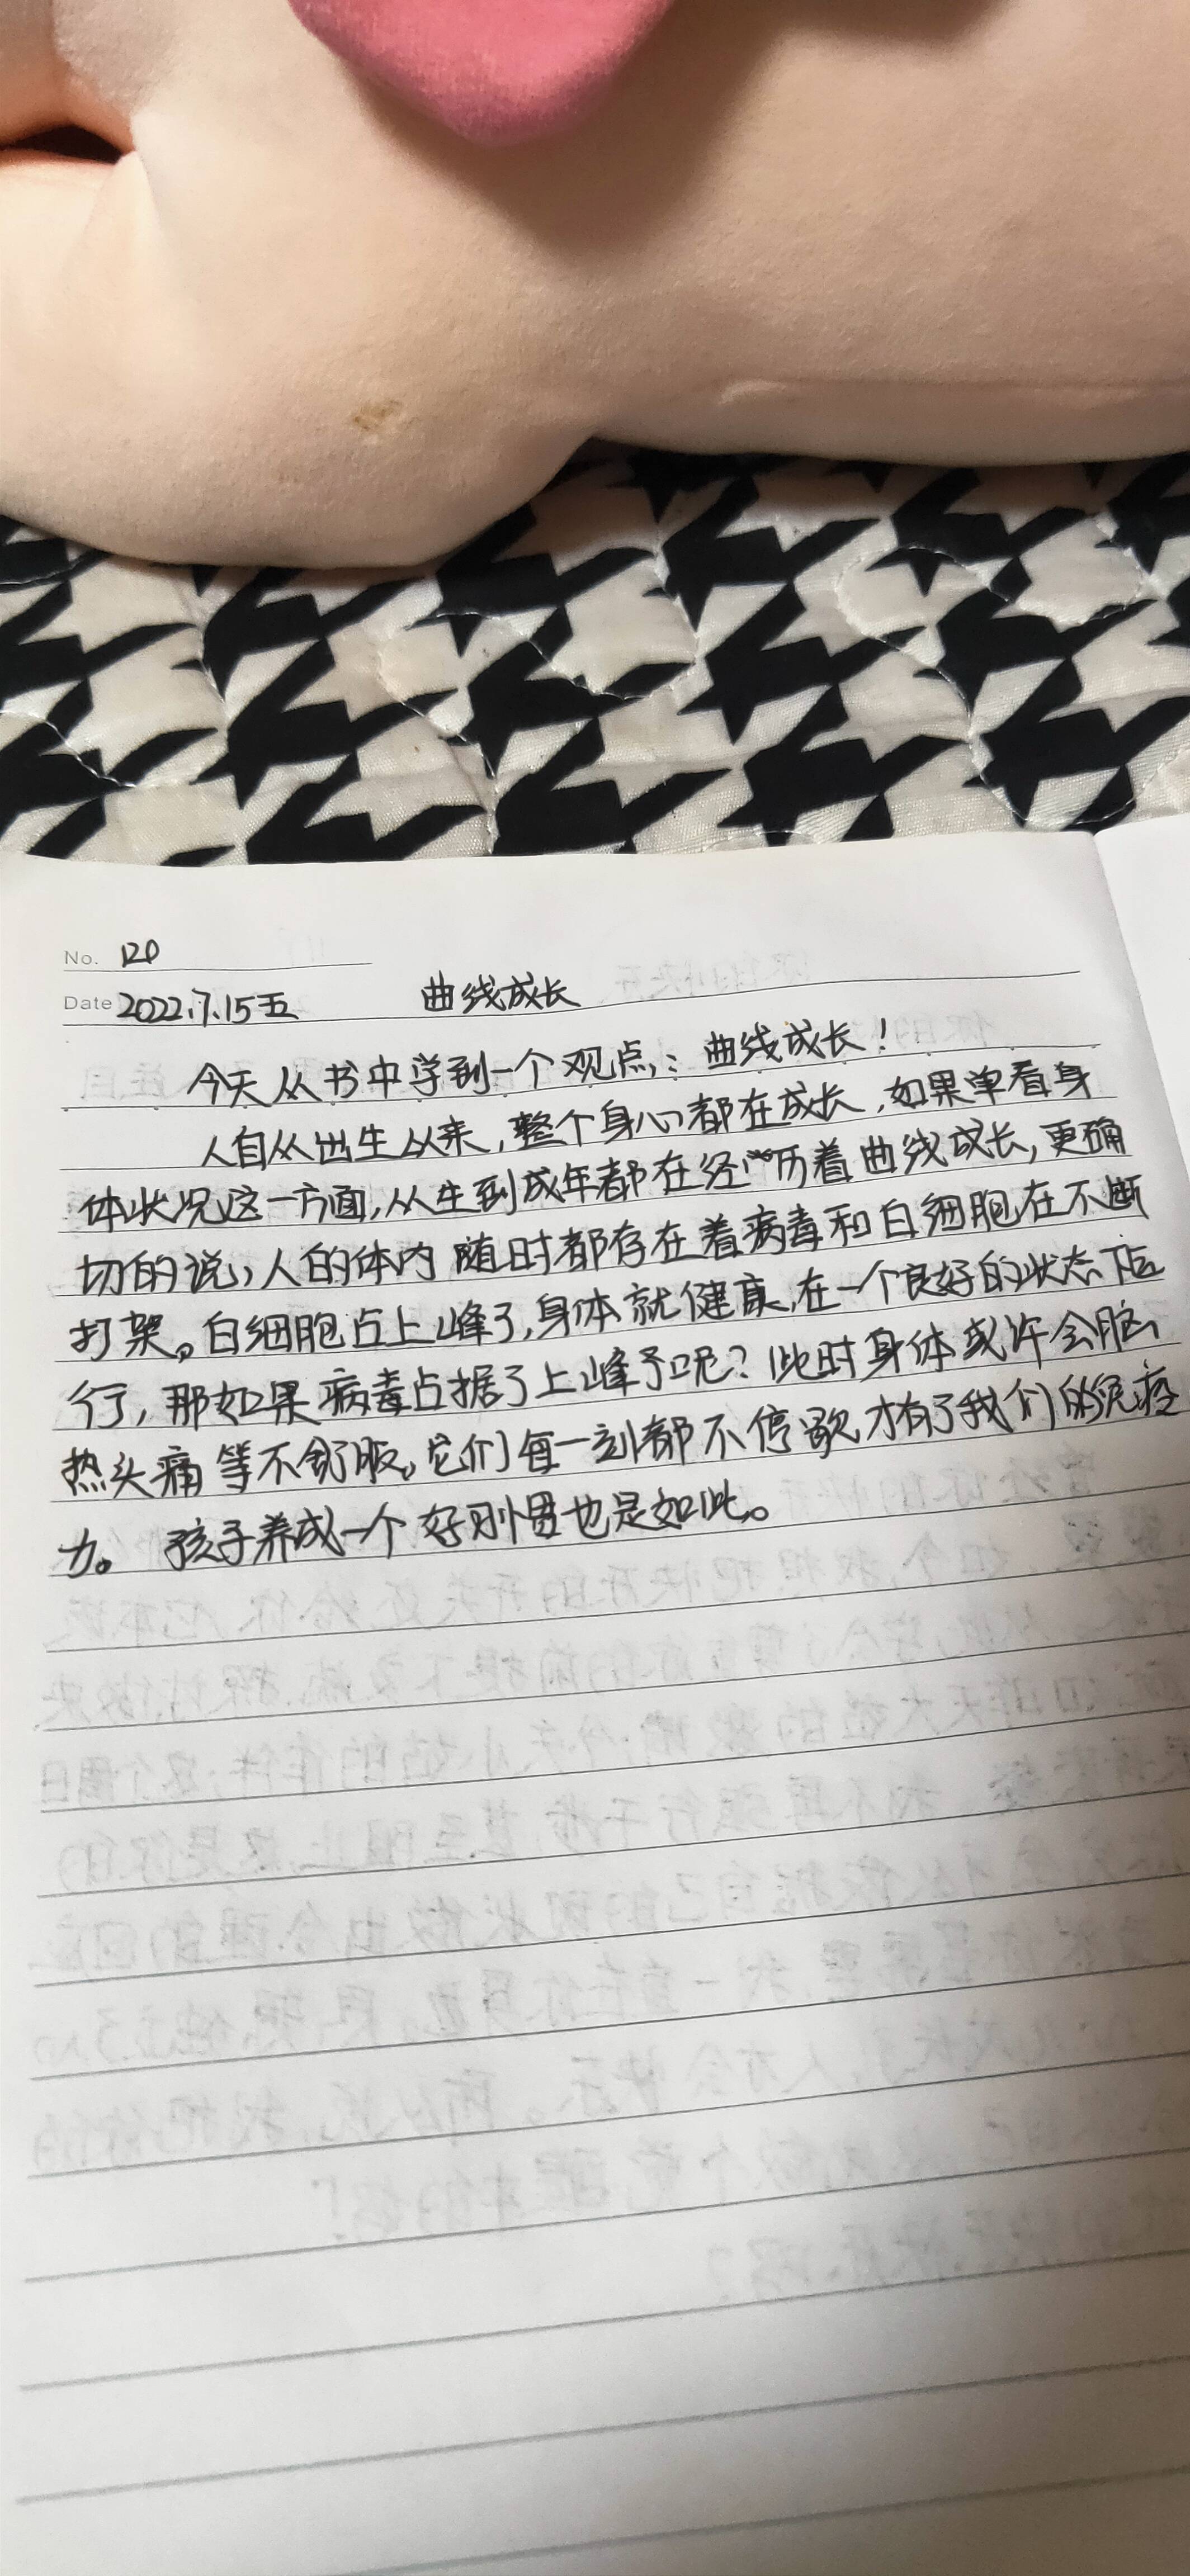 No. 120
Date 2022.7.15五 曲线成长
今天从书中学到一个观点,：曲线成长！
人自从出生以来,整个身心都在成长,如果单看身
体状况这一方面,从生到成年都在经历着曲线成长,更确
切的说,人的体内随时都存在着病毒和白细胞在不断
打架。白细胞占上峰了,身体就健康,在一个良好的状态下运
行,那如果病毒占据了上峰了呢？此时身体或许会脑
热头痛等不舒服,它们每一刻都不停歇才有了我们的免疫
力。 孩子养成一个好习惯也是如此。